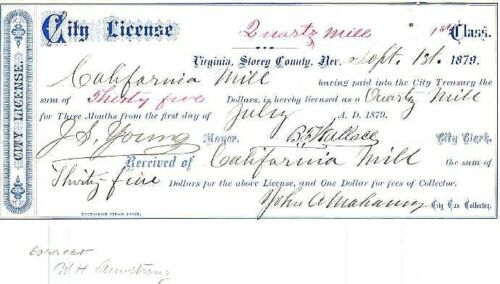 City License Quartz Mill 1st Class.
CITY LICENSE
Virginia, Storey County, Nev. Sept. 1st. 1879.
California Mill having paid into the City Treasury the
sum of Thirty five Dollars, is hereby licensed as a Quartz Mill
for Three Months from the first day of July A. D. 1879.
J. S. Young Mayor. City Clerk.
Received of California Mill the sum of
Thirty five Dollars for the above License, and One Dollar for fees of Collector.
John A Mahanny City Tax Collector.
ENTERPRISE STEAM PRINT.
Correct
W H Armstrong